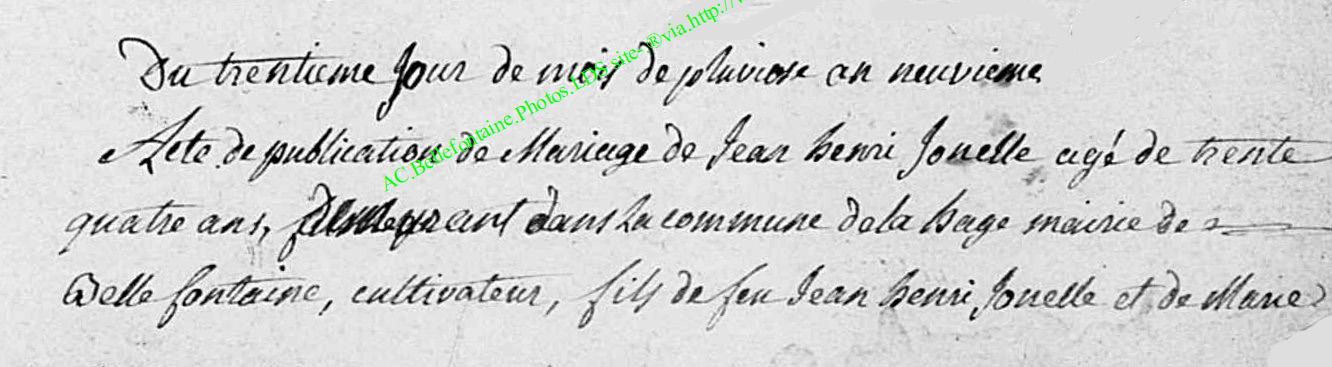 Du trentieme Jour de mois de pluviose an neuvieme
Acte de publication de Mariage de Jean henri Jouelle agé de trente
quatre ans, demeurant dans la commune de la hage mairie de
Bellefontaine, cultivateur, fils de feu Jean henri Jouelle et de Marie
AC.Bellefontaine.Photos.LDS.site-®via.http://